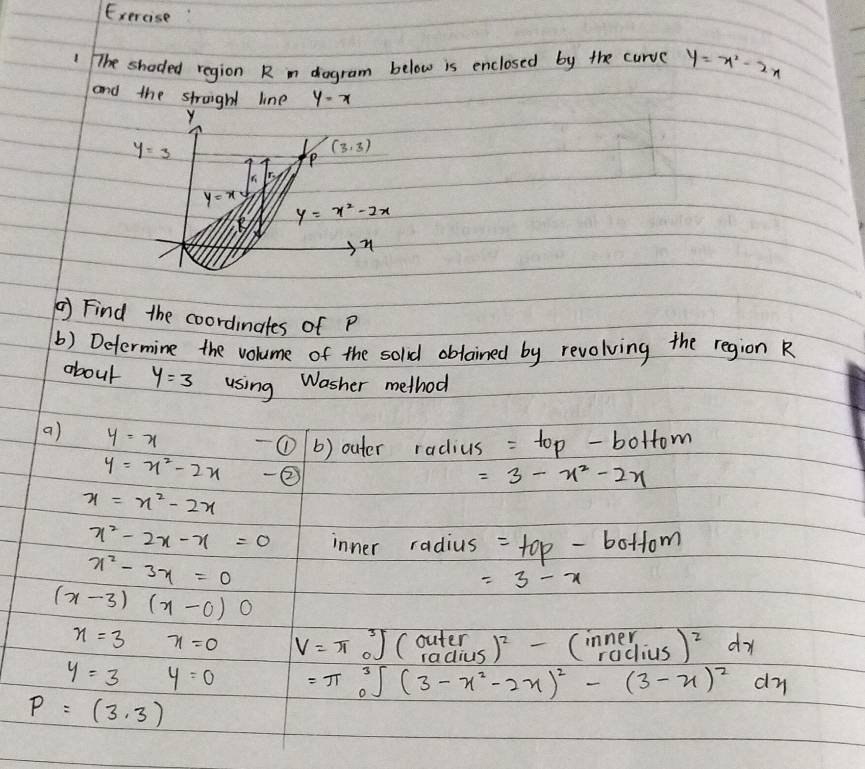 Exercise :
1 The shaded region R in diagram below is enclosed by the curve y = x² - 2x
and the straight line y = x
y
y = 3
(3.3)
P
r₁ r₂
y = x
R
y = x² - 2x
x
a) Find the coordinates of P
b) Determine the volume of the solid obtained by revolving the region R
about y = 3 using Washer method
a) y = x - ①
y = x² - 2x - ②
x = x² - 2x
x² - 2x - x = 0
x² - 3x = 0
(x - 3) (x - 0) 0
x = 3 x = 0
y = 3 y = 0
P = (3.3)
b) outer radius = top - bottom
= 3 - x² - 2x
inner radius = top - bottom
= 3 - x
V = π ₀³∫ (outer radius)² - (inner radius)² dx
= π ₀³∫ (3 - x² - 2x)² - (3 - x)² dx